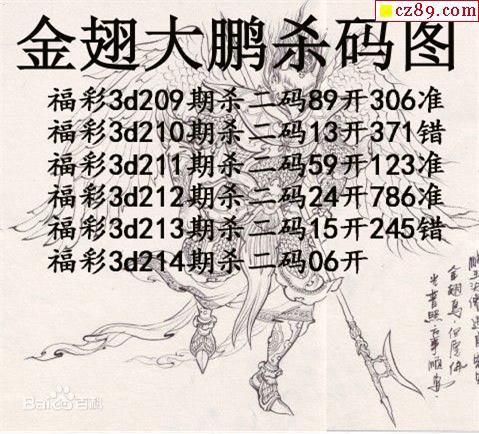 cz89.com
金翅大鹏杀码图
福彩3d209期杀二码89开306准
福彩3d210期杀二码13开371错
福彩3d211期杀二码59开123准
福彩3d212期杀二码24开786准
福彩3d213期杀二码15开245错
福彩3d214期杀二码06开
Bai百科